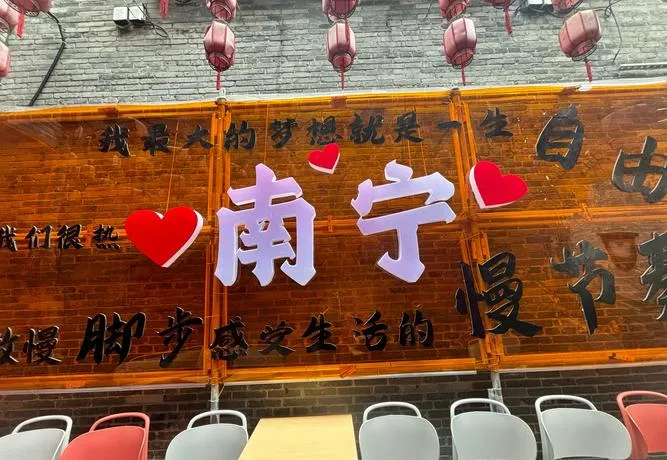 我最大的梦想就是一生自由
南宁
我们很热
慢节奏
放慢脚步感受生活的